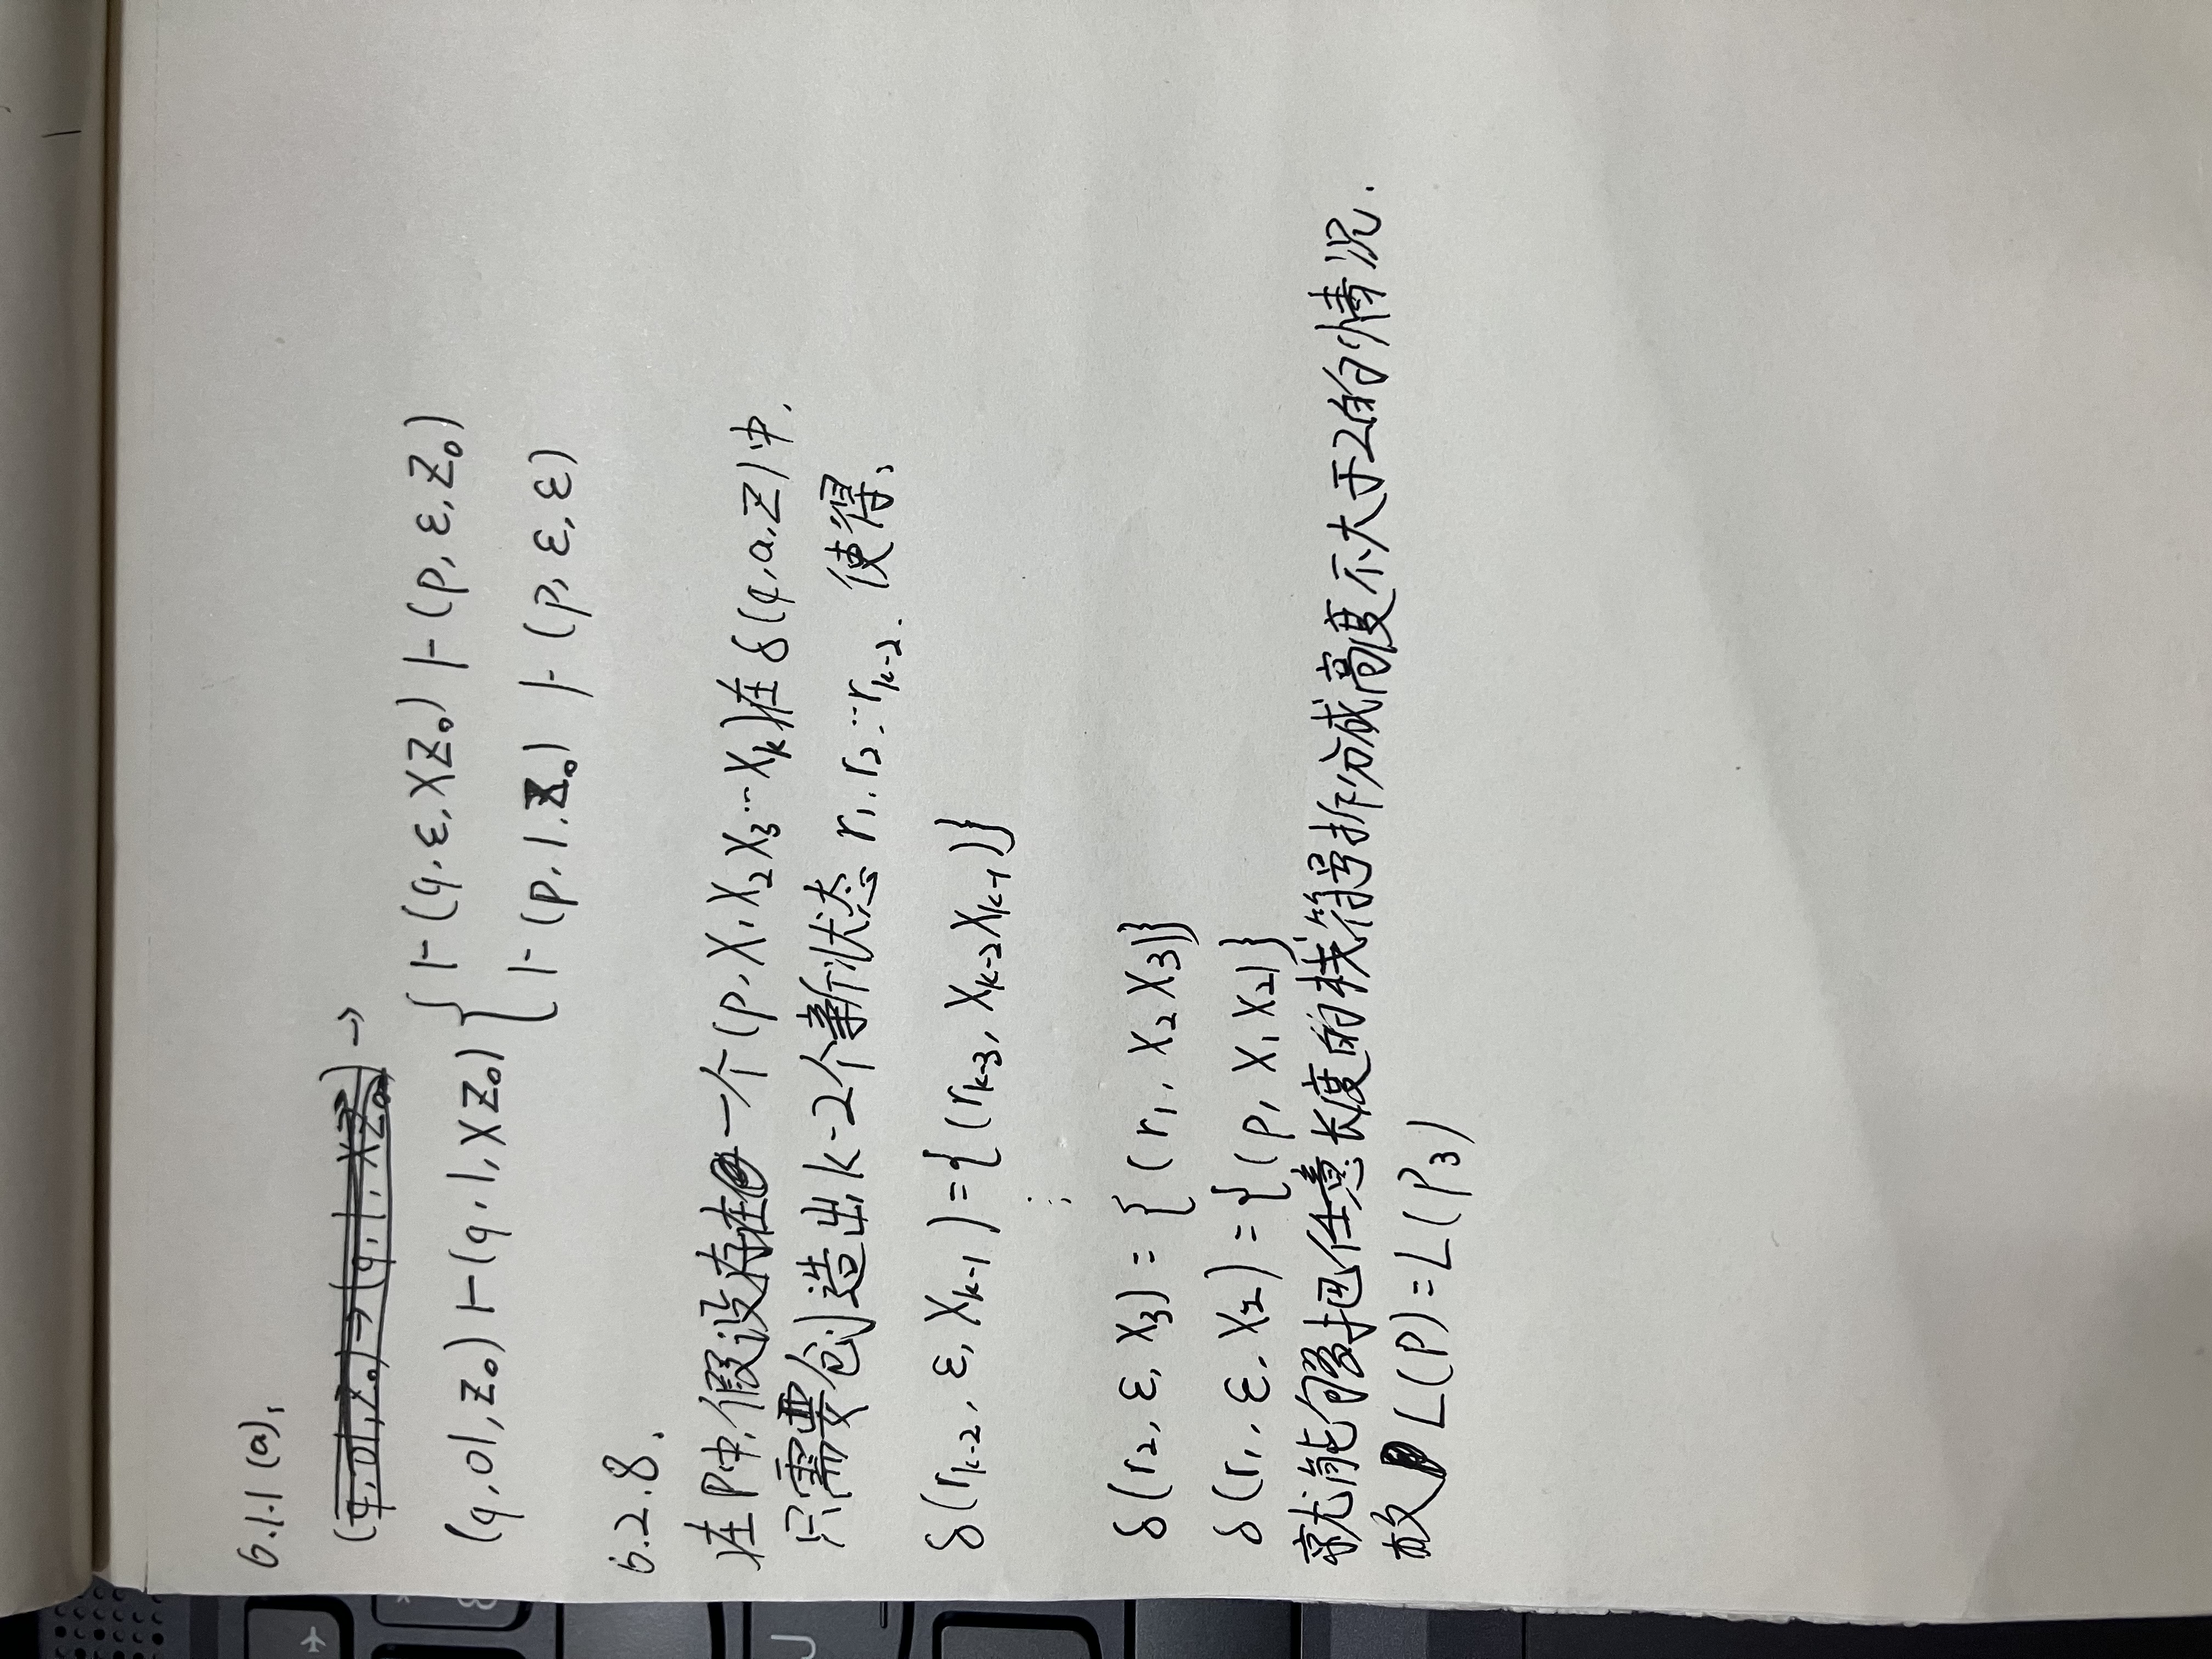 6.1.1 (a):
(q, 01, Z₀) → (q, 1, XZ₀) →
(q, 01, Z₀) ⊢ (q, 1, XZ₀) { ⊢ (q, ε, XZ₀) ⊢ (p, ε, Z₀)
⊢ (p, 1, Z₀) ⊢ (p, ε, ε)
6.2.8.
在P中,假设存在一个(p, X₁X₂X₃…Xₖ)在δ(q,a,Z)中,
只需要创造出k-2个新状态 r₁, r₂…rₖ₋₂. 使得:
δ(rₖ₋₂, ε, Xₖ₋₁) = {(rₖ₋₃, Xₖ₋₂Xₖ₋₁)}
⋮
δ(r₂, ε, X₃) = {(r₁, X₂X₃)}
δ(r₁, ε, X₂) = {(p, X₁X₂)}
就能够把任意长度的栈符号拆分成高度不大于2的情况.
故 L(P) = L(P₃)